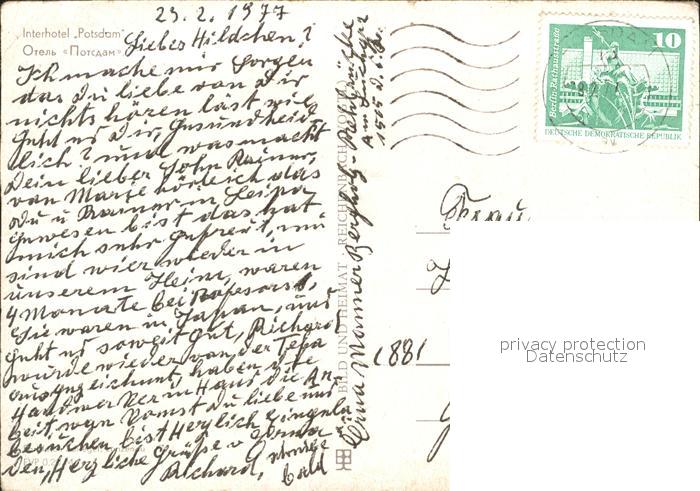 23.2.1977
Interhotel „Potsdam"
Отель «Потсдам»
Liebes Hildchen!
Ich mache mir Sorgen
das du liebe von dir
nichts hören last wie
geht es dir, Gesundheit
lich? und was macht
Dein lieber Sohn Rainer,
von Marie hörte ich das
du u Rainer in Leipz
gewesen bist das hat
mich sehr gefreut, nun
sind wier wieder in
unserem Heim, waren
4 Monate bei
Sie waren in Japan, uns
geht es soweit gut, Richard
wurde wieder von der
ausgezeichnet, haben
Handwerker im Haus die An-
beit wan komst du liebe uns
besuchen bist Herzlich eingela
den, Herzliche Grüße v Erna
Richard, schreibe
bald
BILD UND HEIMAT · REICHENBACH
Erna Bergholz-Rehbrücke
Am
1505 d.d.R.
10
Berlin-Rathausstraße
DEUTSCHE DEMOKRATISCHE REPUBLIK
Frau
1881
privacy protection
Datenschutz